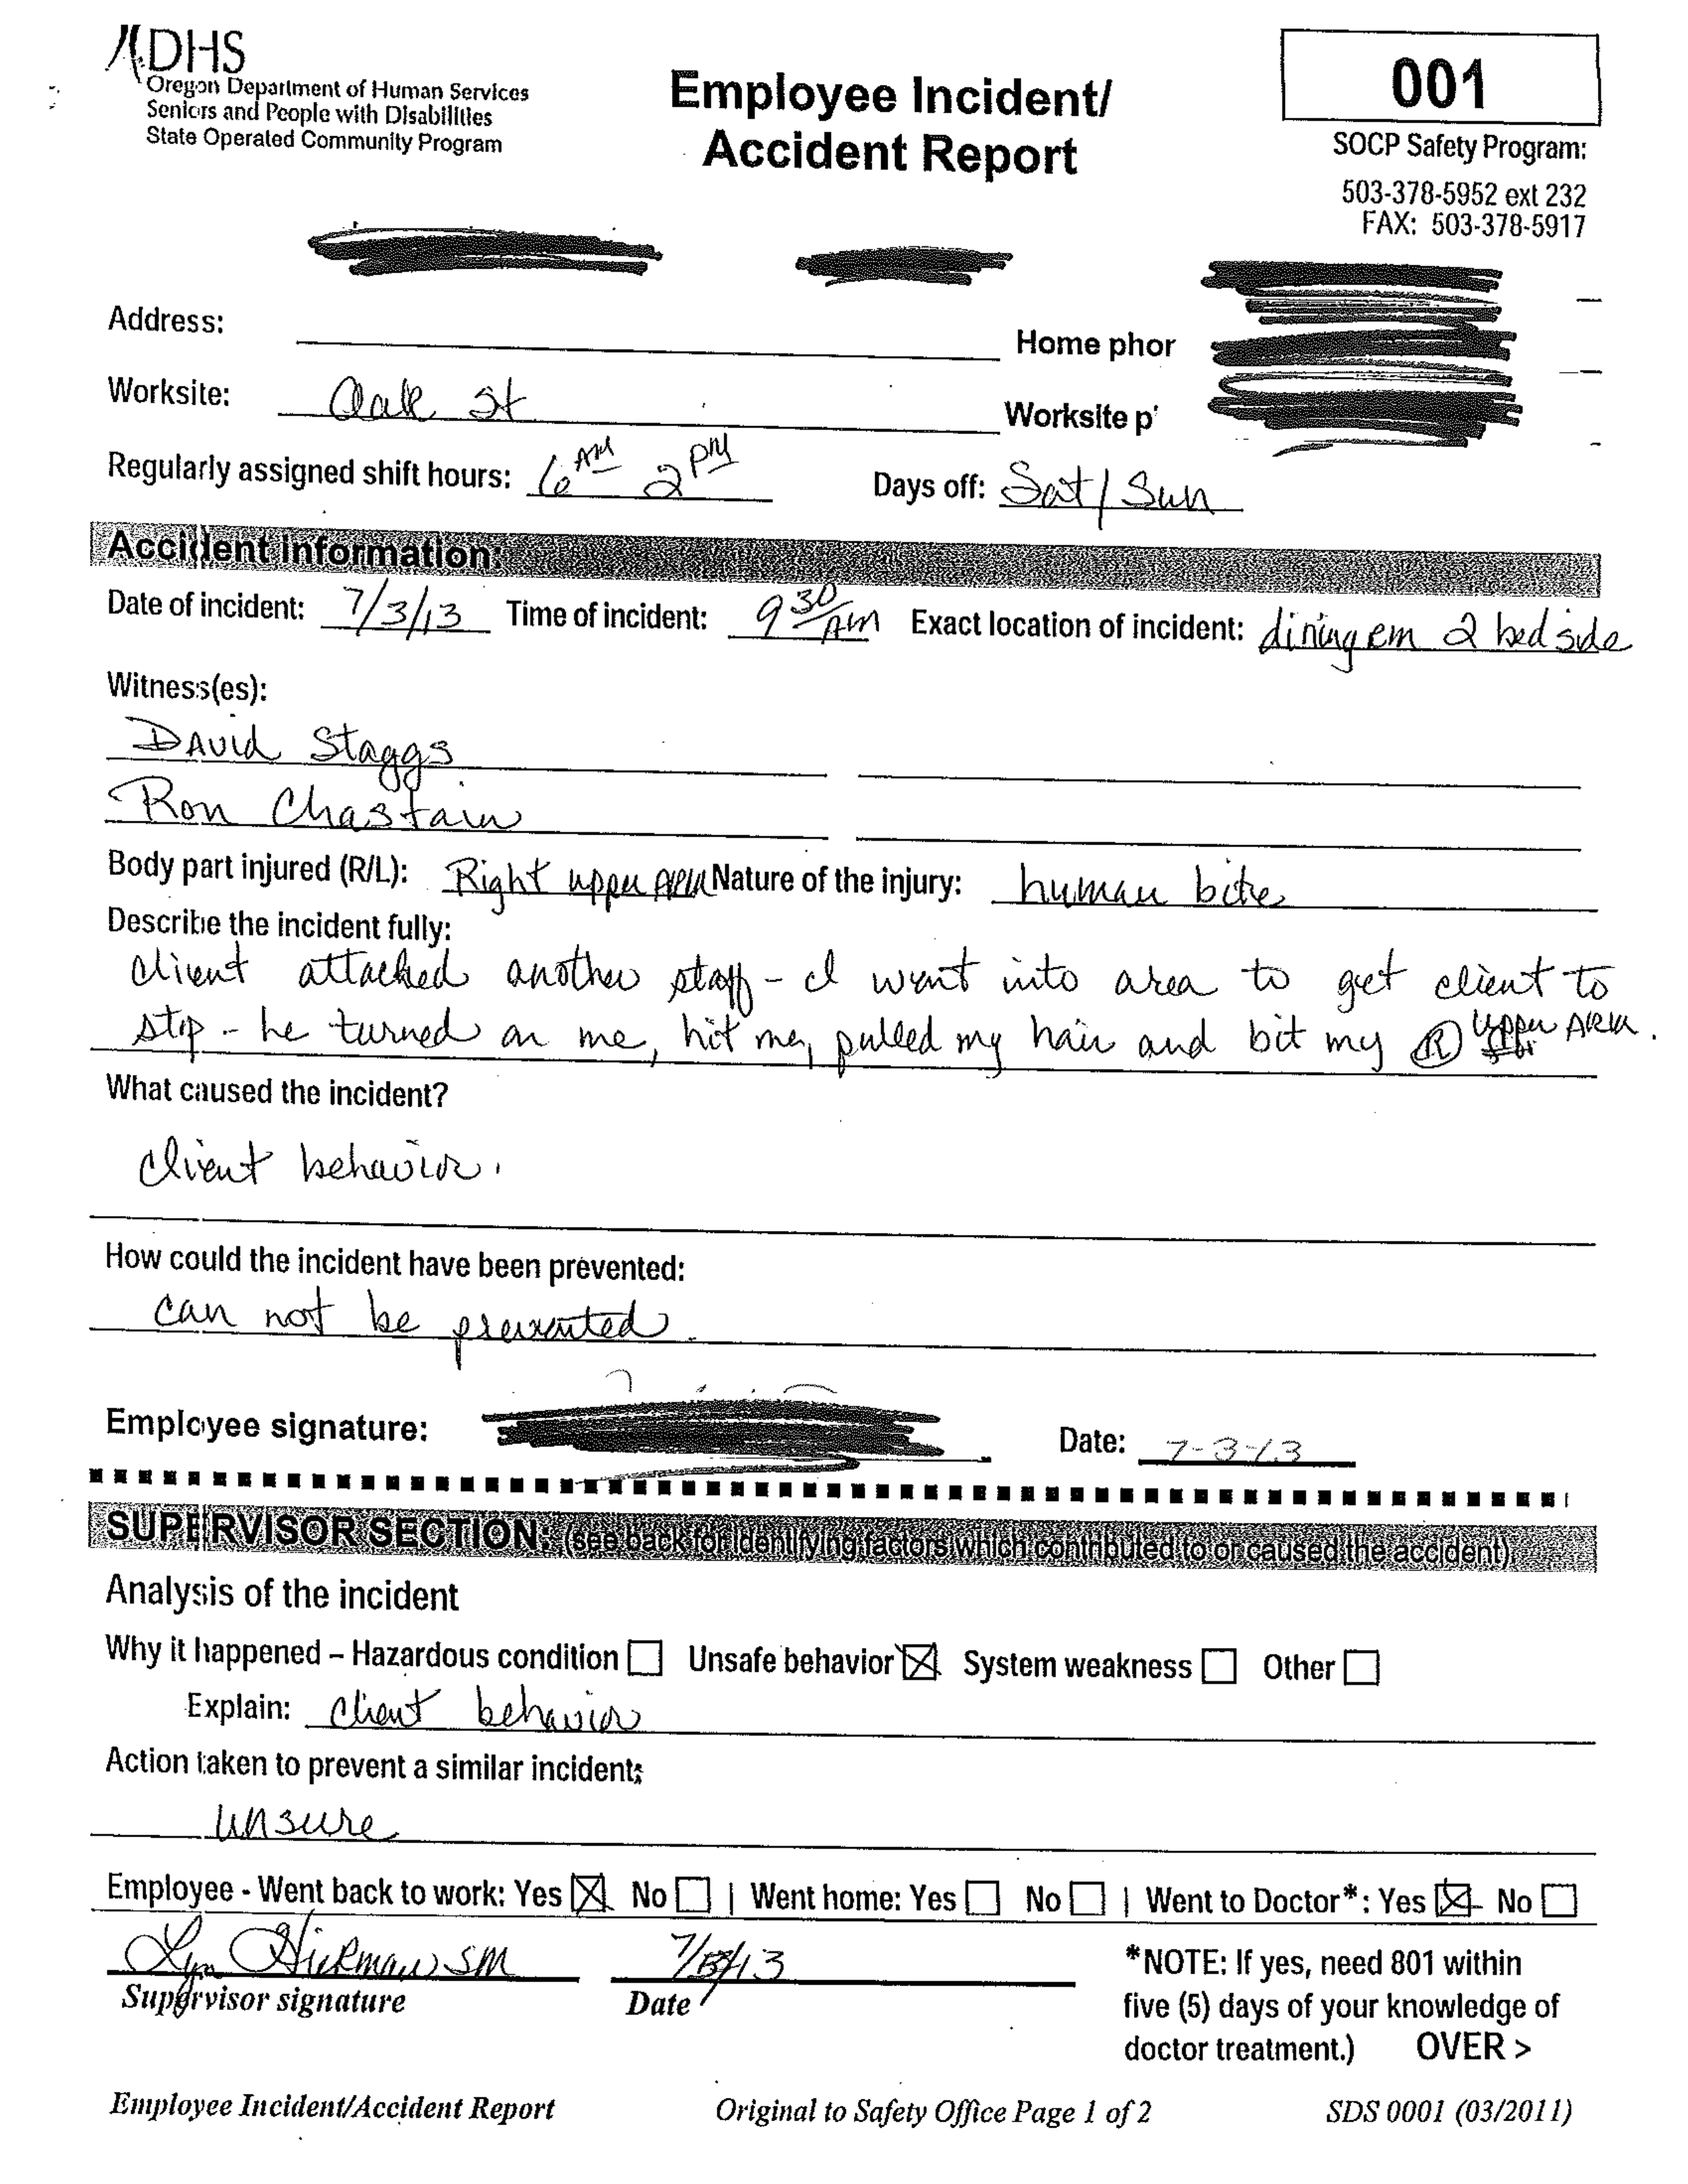 DHS
Oregon Department of Human Services
Seniors and People with Disabilities
State Operated Community Program
Employee Incident/
Accident Report
001
SOCP Safety Program:
503-378-5952 ext 232
FAX: 503-378-5917
Address:
Home phor
Worksite: Oak St
Worksite p'
Regularly assigned shift hours: 6 AM 2 PM Days off: Sat/Sun
Accident Information:
Date of incident: 7/3/13 Time of incident: 9 30 AM Exact location of incident: dining rm 2 bed side
Witness(es):
David Staggs
Ron Chastain
Body part injured (R/L): Right upper arm Nature of the injury: human bite
Describe the incident fully:
client attacked another staff - I went into area to get client to
stop - he turned on me, hit me, pulled my hair and bit my R upper ARM.
What caused the incident?
client behavior.
How could the incident have been prevented:
can not be prevented.
Employee signature: Date: 7-3-13
SUPERVISOR SECTION: (see back for identifying factors which contributed to or caused the accident)
Analysis of the incident
Why it happened – Hazardous condition Unsafe behavior System weakness Other
Explain: client behavior
Action taken to prevent a similar incident:
unsure
Employee - Went back to work: Yes No | Went home: Yes No | Went to Doctor*: Yes No
Lyn Hickman SM 7/ /13
Supervisor signature Date
*NOTE: If yes, need 801 within
five (5) days of your knowledge of
doctor treatment.) OVER >
Employee Incident/Accident Report Original to Safety Office Page 1 of 2 SDS 0001 (03/2011)